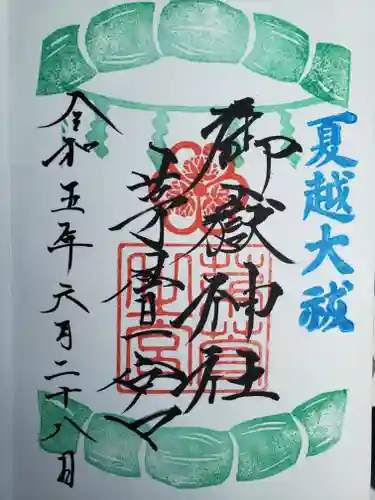 夏越大祓
御嶽神社
茅萱宮
令和五年六月二十八日